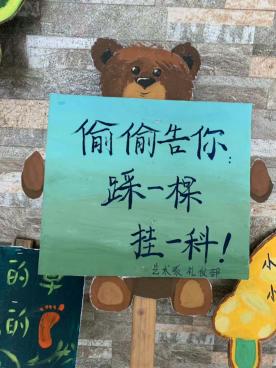 偷偷告你:
踩一棵
挂一科!
艺术系 礼仪部
的草
的
小
小